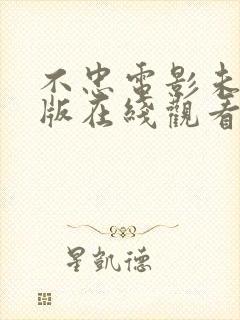 不忠電影未
版在綫觀看
星凱德